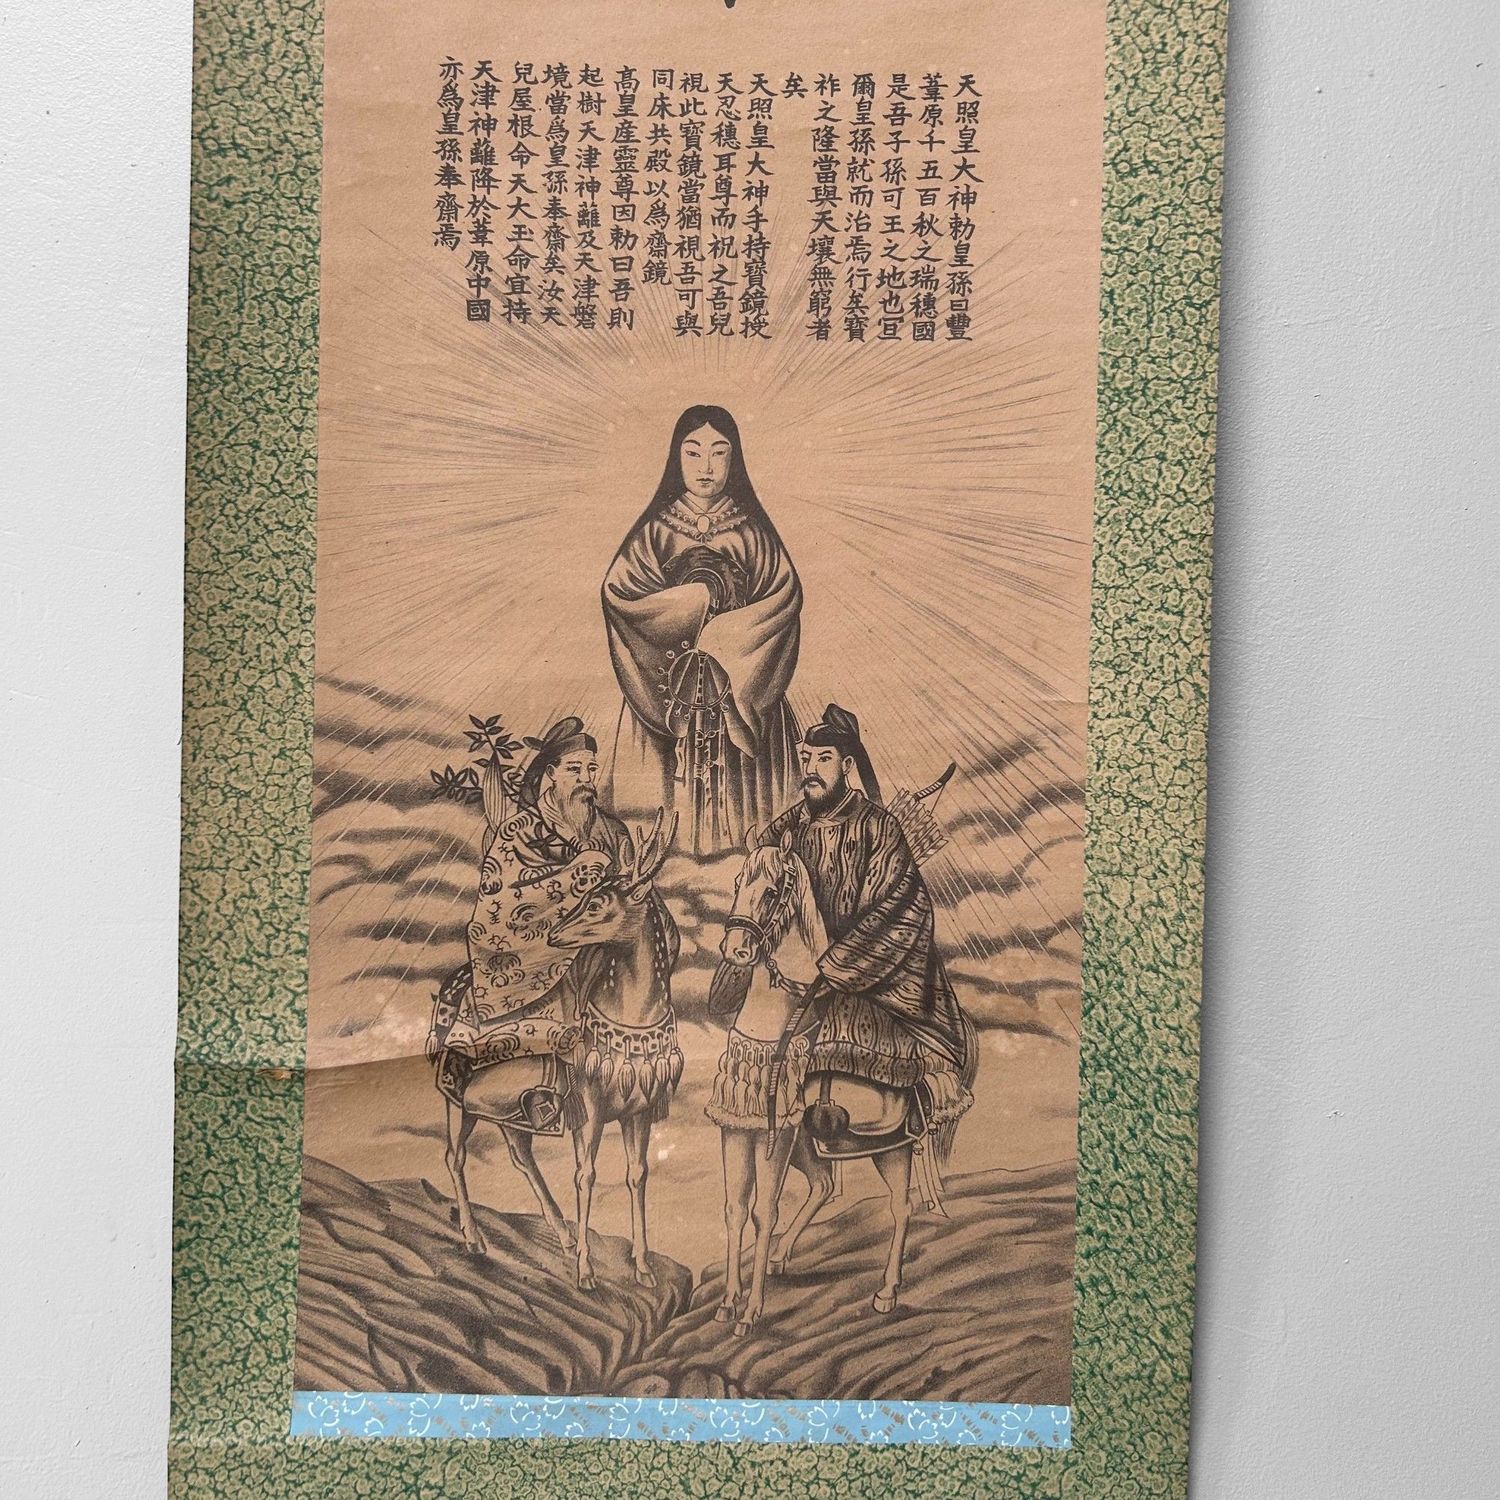 天照皇大神勅皇孫曰豐
葦原千五百秋之瑞穗國
是吾子孫可王之地也宜
爾皇孫就而治焉行矣寶
祚之隆當與天壤無窮者
矣
天照皇大神手持寶鏡授
天忍穗耳尊而祝之吾兒
視此寶鏡當猶視吾可與
同床共殿以爲齋鏡
高皇産靈尊因勅曰吾則
起樹天津神籬及天津磐
境當爲皇孫奉齋矣汝天
兒屋根命天太玉命宜持
天津神籬降於葦原中國
亦爲皇孫奉齋焉